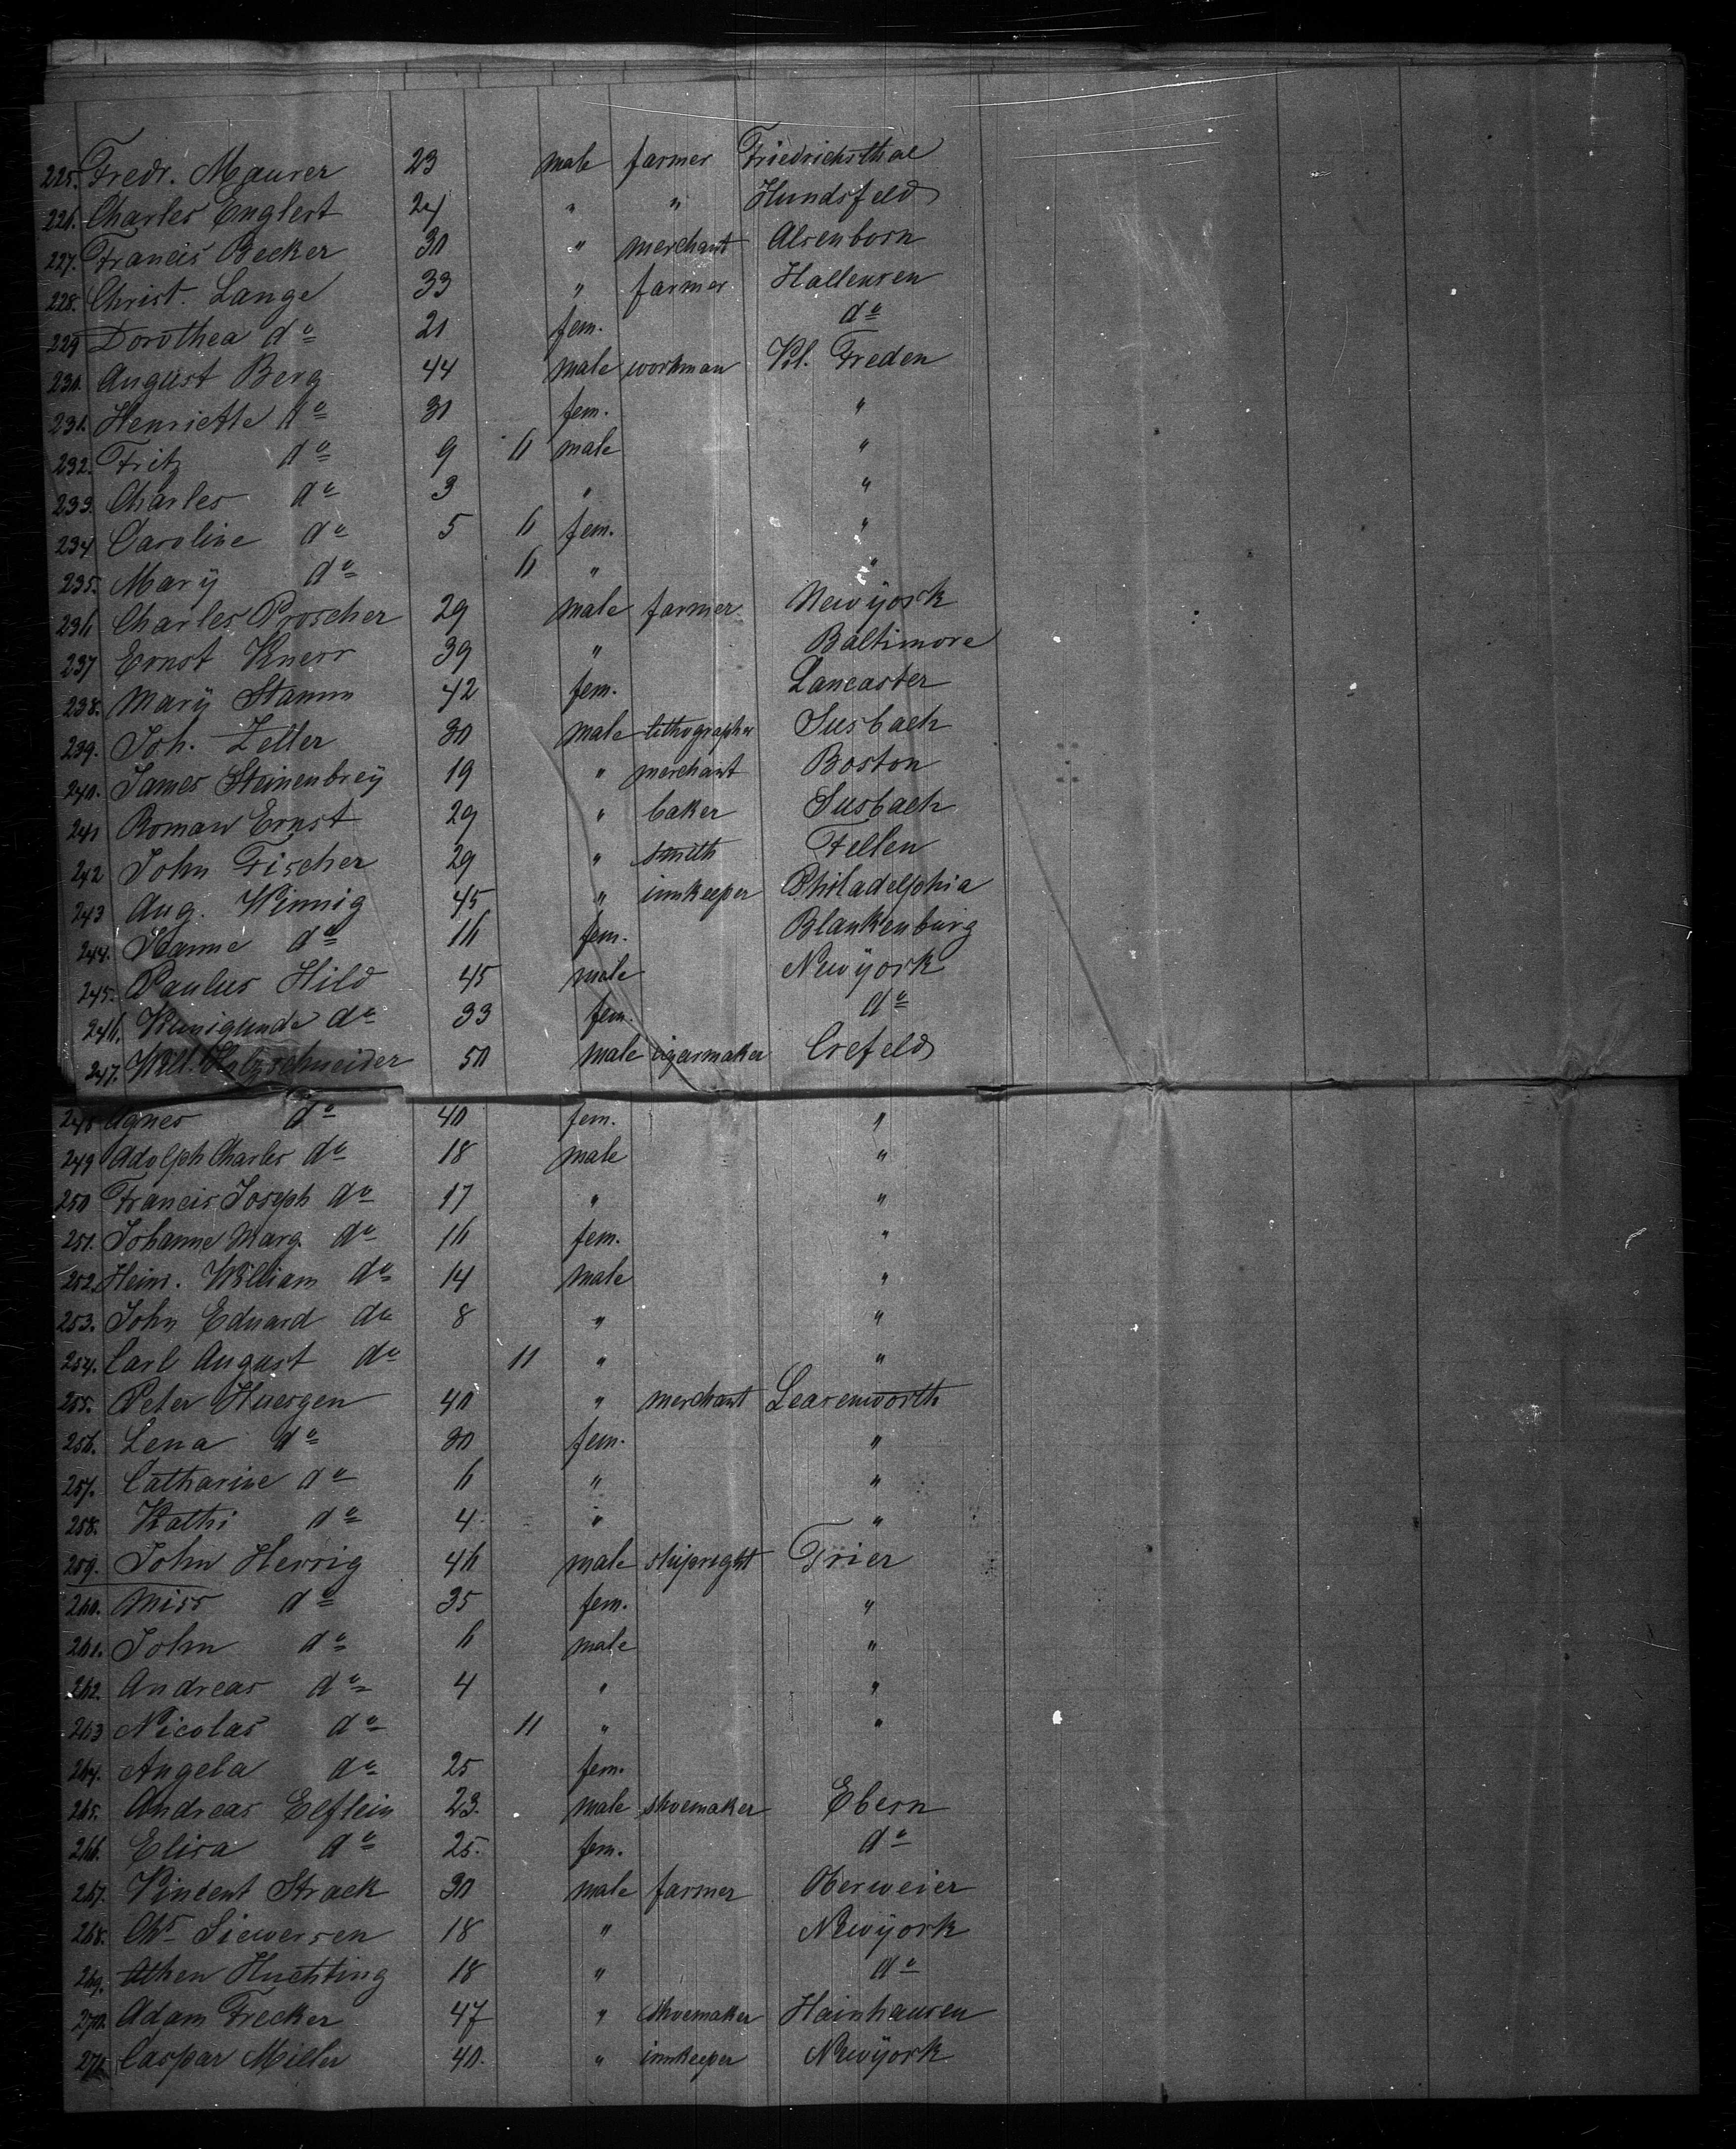 225. Fredr. Maurer 23 male farmer Friedrichsthal
226. Charles Englert 24 " " Hundsfeld
227. Francis Becker 30 " merchant Alsenborn
228. Christ. Lange 33 " farmer Hallensen
229 Dorothea do 21 fem. do
230. August Berg 44 male workman Kl. Freden
231. Henriette do 30 fem. "
232. Fritz do 9 6 male "
233. Charles do 3 " "
234 Caroline do 5 6 fem. "
235. Marÿ do 6 " "
236 Charles Proscher 29 male farmer Newÿork
237 Ernst Knerr 39 " Baltimore
238. Marÿ Stamm 42 fem. Lancaster
239. Joh. Zeller 30 male lithographer Susbach
240. James Steinenbreÿ 19 " merchant Boston
241 Roman Ernst 29 " baker Susbach
242 John Fischer 29 " smith Fellen
243 Aug. Winnig 45 " innkeeper Philadelphia
244. Hanne do 16 fem. Blankenburg
245. Paulus Hild 45 male Newÿork
246. Kunigunde do 33 fem. do
247. Will. Holzschneider 50 male cigarmaker Crefeld
248 Agnes do 40 fem. "
249 Adolph Charles do 18 male "
250 Francis Joseph do 17 " "
251. Johanne Marg. do 16 fem. "
252. Heinr. William do 14 male "
253. John Eduard do 8 " "
254. Carl August do 11 " "
255. Peter Huesgen 40 " merchant Leavenworth
256. Lena do 30 fem. "
257. Catharine do 6 " "
258. Kathi do 4 " "
259. John Herrig 46 male shipright Trier
260. Miss do 35 fem. "
261. John do 6 male "
262. Andreas do 4 " "
263 Nicolas do 11 " "
264. Angela do 25 fem.
265. Andreas Elflein 23. male shoemaker Ebern
266. Elisa do 25. fem. do
267. Vincent Strack 30 male farmer Oberweier
268. Chs Siewersen 18 " Newÿork
269. Huchting 18 " do
270. Adam Frecker 47 " shoemaker Hainhausen
271. Caspar Miller 40. " innkeeper Newÿork